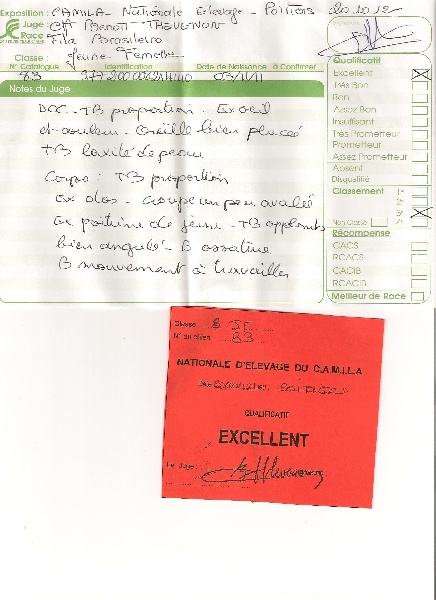 Exposition: CAMILA - Nationale Elevage - Poitiers 20.10.12
Juge: Mr Benoit THEVENON
Race Fila Brasileiro
Classe: Jeune - Femelle
N° Catalogue Identification Date de Naissance à Confirmer
83 03/11/11
Notes du Juge
TB proportion - Excel
et couleur - Oreille bien placée
TB laxité de peau
Corps: TB proportion
Ex dos - Croupe un peu avalée
Ex poitrine de jeune - TB applombs
bien angulé - B ossature
B mouvement à travailler
Qualificatif
Excellent
Très Bon
Bon
Assez Bon
Insuffisant
Très Prometteur
Prometteur
Assez Prometteur
Absent
Disqualifié
Classement 1er
2e
3e
Non Classé 4e
Récompense
CACS
RCACS
CACIB
RCACIB
Meilleur de Race
Classe: 8 JE
N° du chien: 83
NATIONALE D'ELEVAGE DU C.A.M.I.L.A
QUALIFICATIF
EXCELLENT
Le Juge: